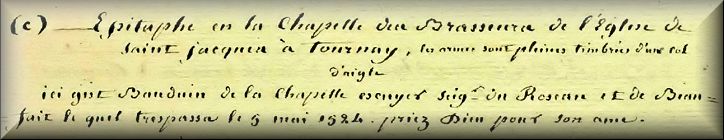 (c) — Epitaphe en la Chapelle des Brasseurs de l'Église de
Saint jacques à Tournay, les armes sont pleines timbrées d'une col
d'aigle
ici gist Bauduin de la Chapelle escuyer seigr. du Roseau et de Biau-
fait le quel trespassa le 5 mai 1524. priez Dieu pour son ame.